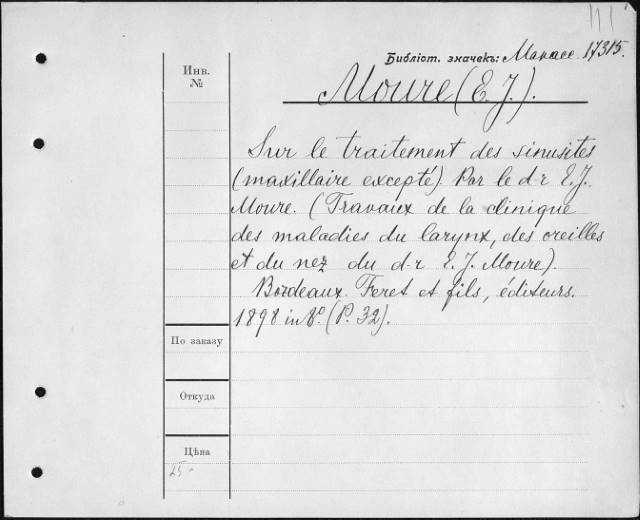 Библіот. значекъ: Манасе. 17315.
Инв.
№
Moure (E. J.).
Sur le traitement des sinusites
(maxillaire excepté). Par le d-r E. J.
Moure. (Travaux de la clinique
des maladies du larynx, des oreilles
et du nez du d-r E. J. Moure).
Bordeaux. Feret et fils, éditeurs.
1898 in 8°. (P. 32).
По заказу
Откуда
Цѣна